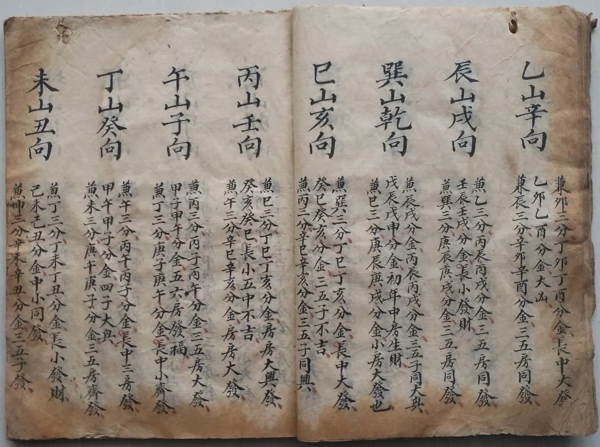 乙山辛向
兼卯三分丁卯丁酉分金長中大發
乙卯乙酉分金大凶
兼辰三分辛卯辛酉分金三五房同發
辰山戌向
兼乙三分丙辰丙戌分金三五房同發
壬辰壬戌分金長小發財
兼巽三分庚辰庚戌分金三五房同發
巽山乾向
兼辰戌分金丙辰丙戌分金三五子同大興
戊辰戊申分金初年申房生財
兼巳三分庚辰庚戌分金小房大發也
巳山亥向
兼巽三分丁巳丁亥分金長中大發
癸巳癸亥分金三五子不吉
兼丙三分辛巳辛亥分金三五子同興
丙山壬向
兼巳三分丁巳丁亥分金房房大興發
癸亥癸巳長小五中不吉
兼午三分辛巳辛亥分金房房大發
午山子向
兼丙三分丙子丙午分金三五房大發
甲子甲午分金五六房發福
兼丁三分庚子庚午分金長中小發
丁山癸向
兼午三分丙午丙子分金長中三房發
甲午甲子分金四子大興
兼未三分庚午庚子分金三五房齊發
未山丑向
兼丁三分丁未丁丑分金長小發財
己未己丑分金中小同發
兼坤三分辛未辛丑分金三五子發